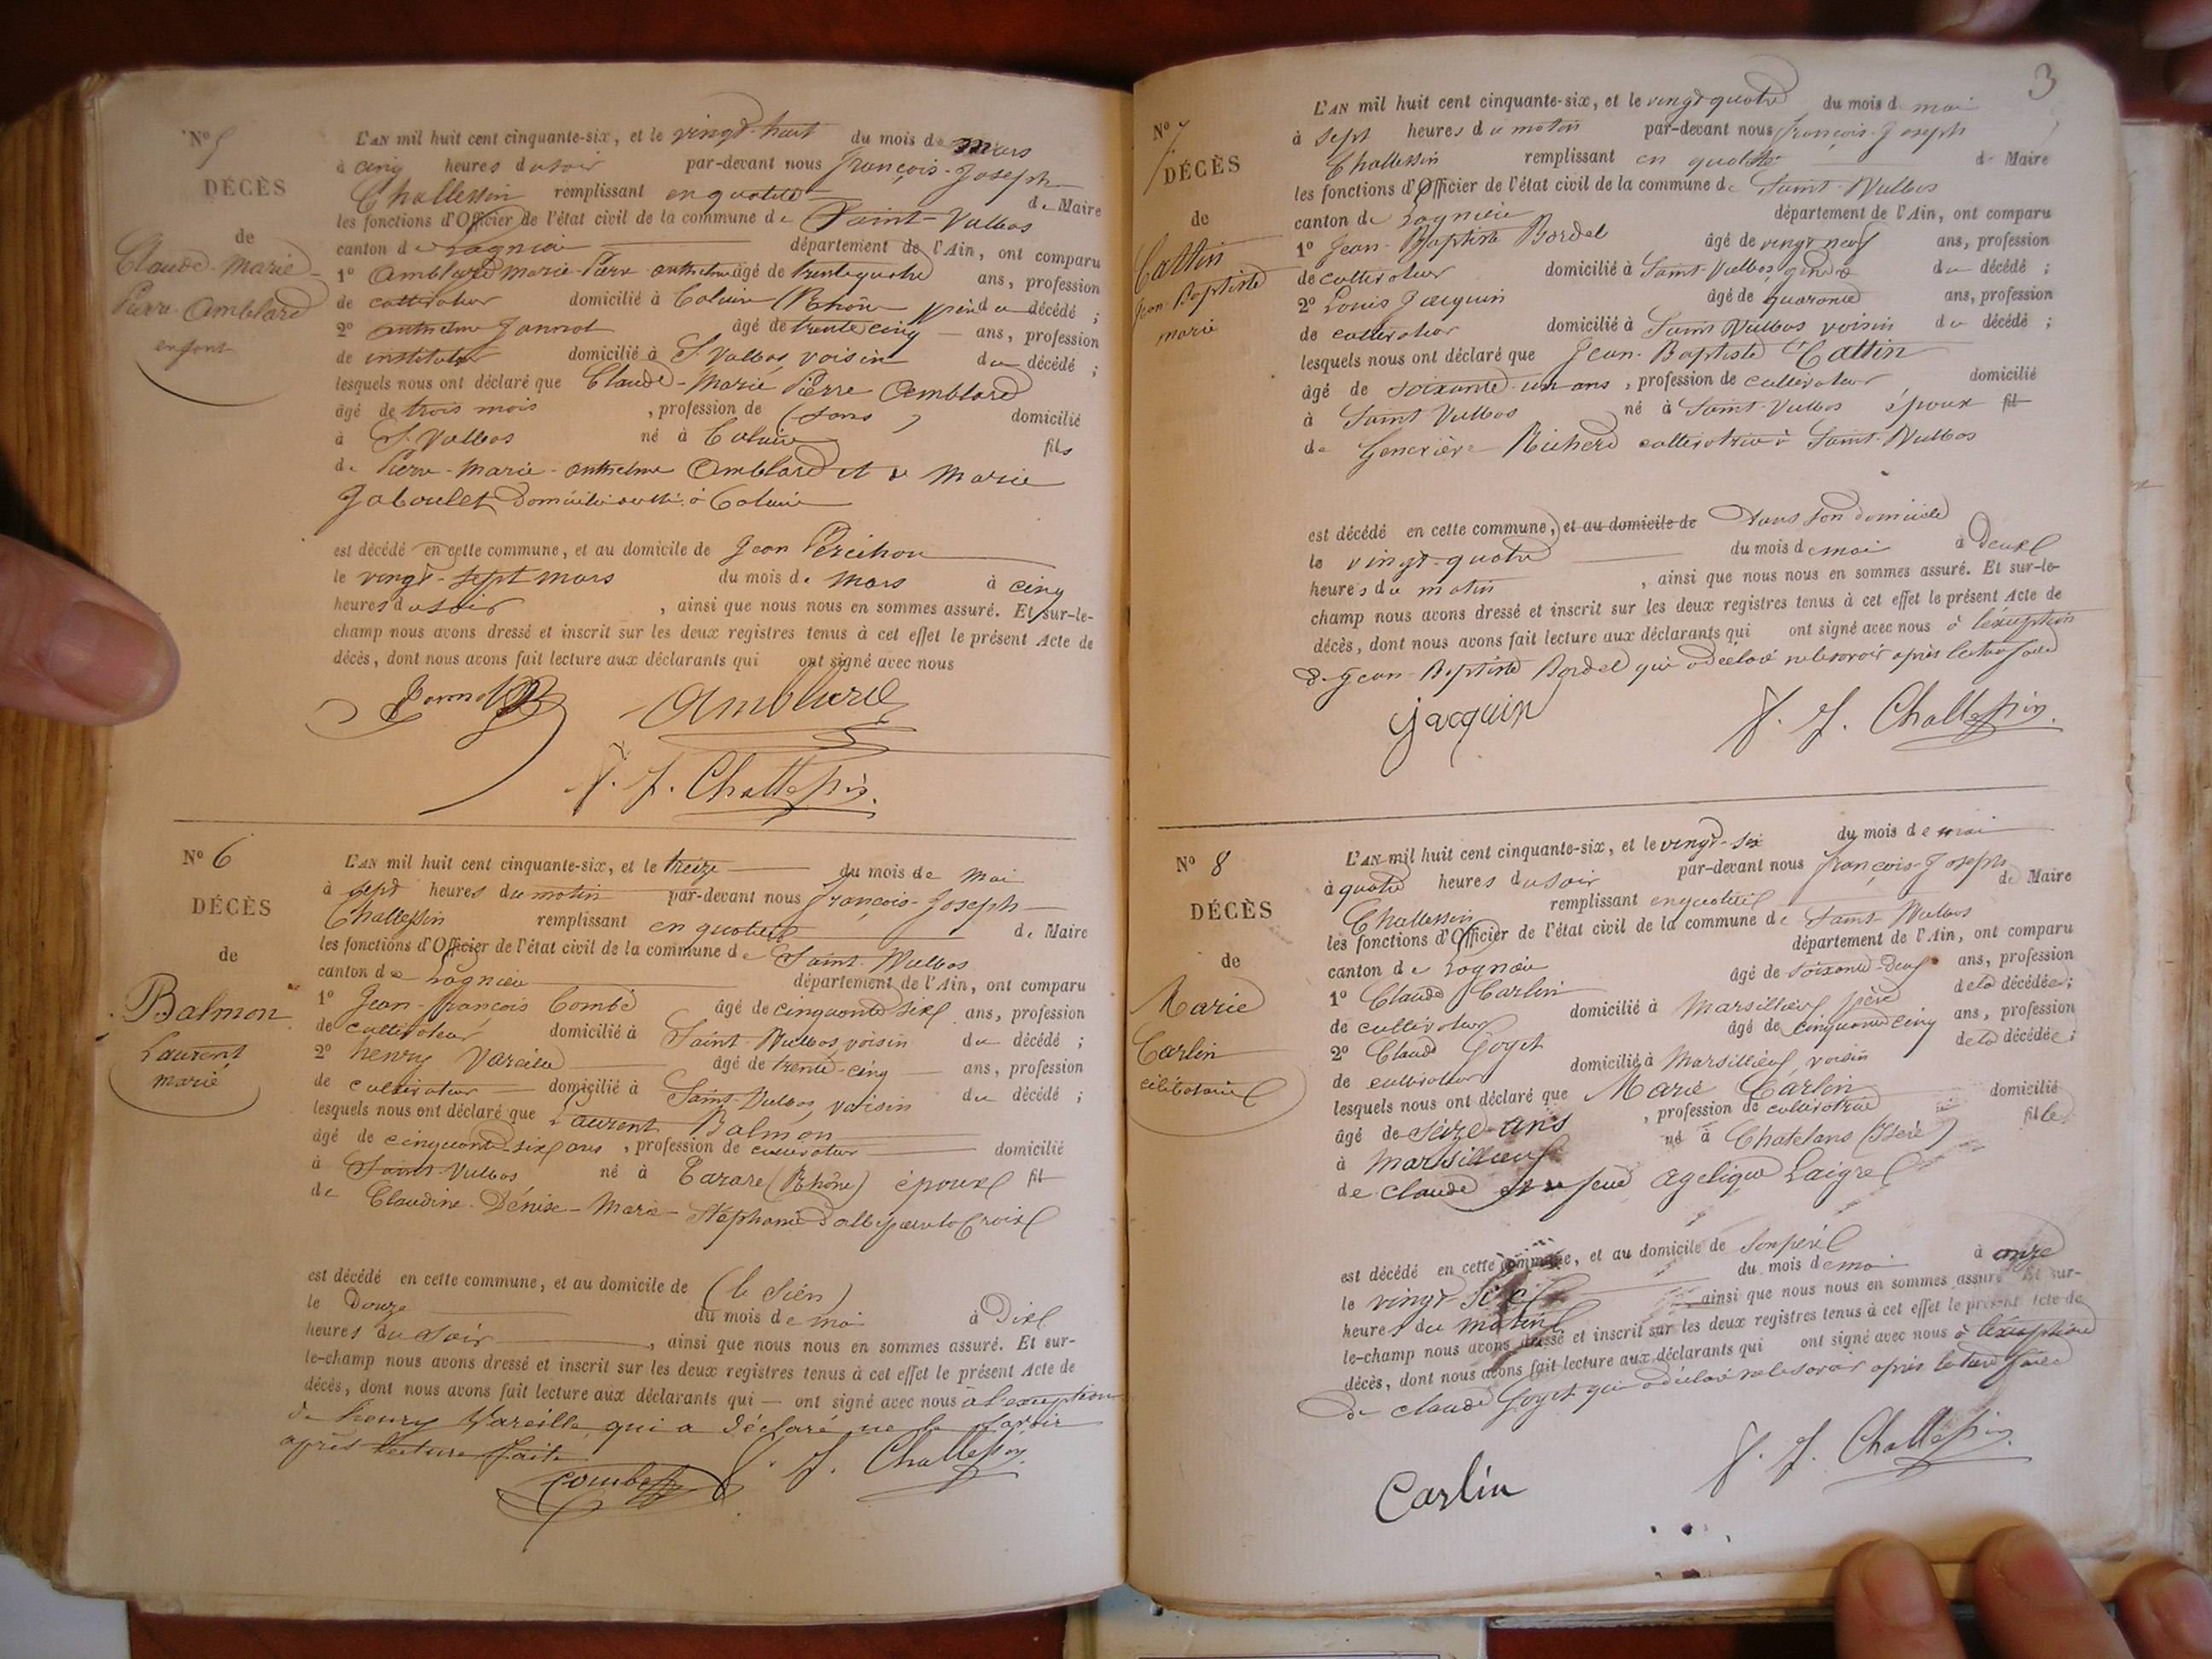 N° 5
DÉCÈS
de
Claude-Marie-
Pierre Amblard
enfant
L'AN mil huit cent cinquante-six, et le vingt-huit du mois de mars
à cinq heures du soir par-devant nous françois-Joseph
Challessin remplissant en qualité de Maire
les fonctions d'Officier de l'état civil de la commune de Saint-Vulbas
canton de Lagnieu département de l'Ain, ont comparu
1° Amblard Marie-Pierre-anthelme âgé de trente quatre ans, profession
de cultivateur domicilié à Caluire (Rhône) père du décédé ;
2° anthelme Jannot âgé de trente cinq ans, profession
de instituteur domicilié à St Vulbas, voisin du décédé ;
lesquels nous ont déclaré que Claude-Marie Pierre Amblard
âgé de trois mois , profession de (sans) domicilié
à St Vulbas né à Caluire fils
de Pierre-Marie-anthelme Amblard et de Marie
Jaboulet domiciliés à Caluire
est décédé en cette commune, et au domicile de Jean Perichon
le vingt-sept mars du mois de mars à cinq
heures du soir , ainsi que nous nous en sommes assuré. Et sur-le-
champ nous avons dressé et inscrit sur les deux registres tenus à cet effet le présent Acte de
décès, dont nous avons fait lecture aux déclarants qui ont signé avec nous
Jannot Amblard
f. J. Challessin.
N° 6
DÉCÈS
de
Balmon
Laurent
marié
L'AN mil huit cent cinquante-six, et le treize du mois de mai
à sept heures du matin par-devant nous françois-Joseph
Challessin remplissant en qualité de Maire
les fonctions d'Officier de l'état civil de la commune de Saint-Vulbas
canton de Lagnieu département de l'Ain, ont comparu
1° Jean-françois Combe âgé de cinquante six ans, profession
de cultivateur domicilié à Saint-Vulbas, voisin du décédé ;
2° henry Vareille âgé de trente-cinq ans, profession
de cultivateur domicilié à Saint-Vulbas, voisin du décédé ;
lesquels nous ont déclaré que Laurent Balmon
âgé de cinquante six ans , profession de cultivateur domicilié
à Saint-Vulbas né à Tarare (Rhône) époux fil
de Claudine-Dénise-Marie-Stéphanie
est décédé en cette commune, et au domicile de (le sien)
le Douze du mois de mai à Dix
heures du soir , ainsi que nous nous en sommes assuré. Et sur-
le-champ nous avons dressé et inscrit sur les deux registres tenus à cet effet le présent Acte de
décès, dont nous avons fait lecture aux déclarants qui ont signé avec nous à l'exception
de henry Vareille qui a déclaré ne le savoir
après lecture faite
Combe f. J. Challessin.
3
N° 7
DÉCÈS
de
Cattin
Jean-Baptiste
marié
L'AN mil huit cent cinquante-six, et le vingt quatre du mois de mai
à sept heures du matin par-devant nous françois-Joseph
Challessin remplissant en qualité de Maire
les fonctions d'Officier de l'état civil de la commune de Saint-Vulbas
canton de Lagnieu département de l'Ain, ont comparu
1° Jean-Baptiste Bordel âgé de vingt neuf ans, profession
de cultivateur domicilié à Saint-Vulbas gendre du décédé ;
2° Louis Jacquin âgé de quarante ans, profession
de cultivateur domicilié à Saint Vulbas voisin du décédé ;
lesquels nous ont déclaré que Jean-Baptiste Cattin
âgé de soixante-un ans , profession de cultivateur domicilié
à Saint Vulbas né à Saint-Vulbas époux fil
de Genevière Richerd cultivatrice à Saint-Vulbas
est décédé en cette commune, et au domicile de Dans son domicile
le vingt-quatre du mois de mai à Deux
heures du matin , ainsi que nous nous en sommes assuré. Et sur-le-
champ nous avons dressé et inscrit sur les deux registres tenus à cet effet le présent Acte de
décès, dont nous avons fait lecture aux déclarants qui ont signé avec nous à l'exception
de Jean-Baptiste Bordel qui a déclaré ne le savoir après lecture faite
jacquin f. J. Challessin.
N° 8
DÉCÈS
de
Marie
Carlin
célibataire
L'AN mil huit cent cinquante-six, et le vingt-six du mois de mai
à quatre heures du soir par-devant nous françois-Joseph
Challessin remplissant en qualité de Maire
les fonctions d'Officier de l'état civil de la commune de Saint-Vulbas
canton de Lagnieu département de l'Ain, ont comparu
1° Claude Carlin âgé de soixante-Deux ans, profession
de cultivateur domicilié à Marsillieux père de la décédée ;
2° Claude Goyet âgé de cinquante cinq ans, profession
de cultivateur domicilié à Marsillieux, voisin de la décédée ;
lesquels nous ont déclaré que Marie Carlin
âgé de Seize ans , profession de cultivatrice domicilié
à Marsillieux né à Chatelans (Isère) fille
de Claude et de feue Agelique Laigre
est décédé en cette commune, et au domicile de son père
le vingt Six du mois de mai à onze
heures du matin ainsi que nous nous en sommes assuré. Et sur-
le-champ nous avons dressé et inscrit sur les deux registres tenus à cet effet le présent Acte de
décès, dont nous avons fait lecture aux déclarants qui ont signé avec nous à l'exception
de Claude Goyet qui a déclaré ne le savoir après lecture faite
Carlin f. J. Challessin.